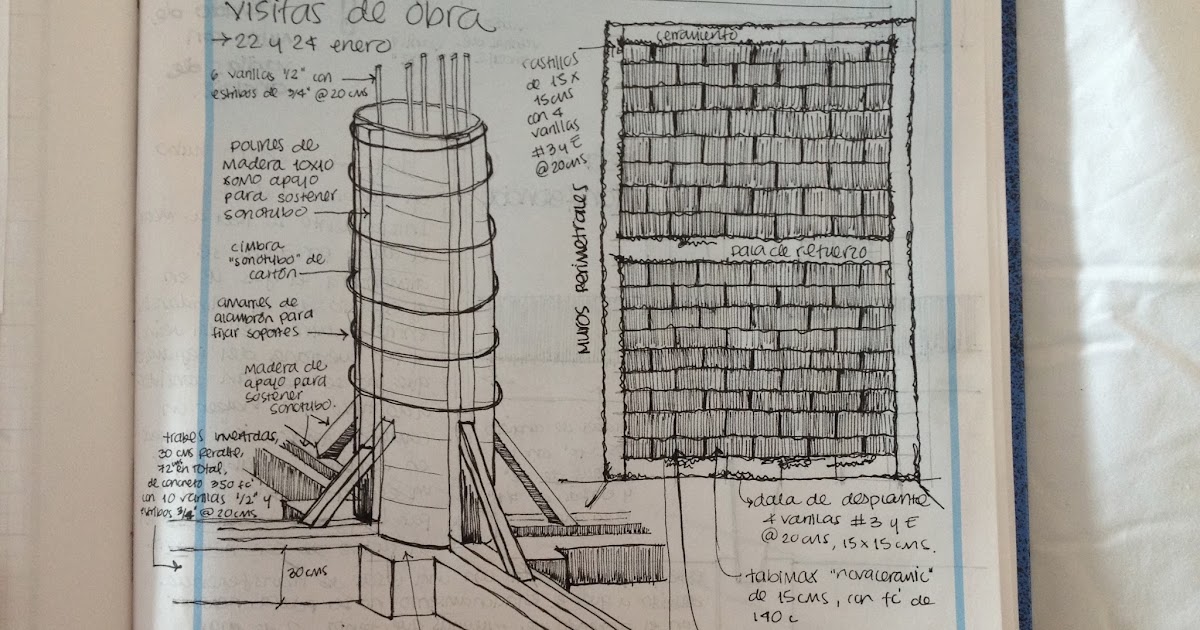 visitas de obra
→22 y 24 enero
6 varillas 1/2" con
estribos de 3/4" @20cms
polines de
madera 10x10
como apoyo
para sostener
sonotubo
cimbra
"sonotubo" de
cartón
amarres de
alambrón para
fijar soportes
Madera de
apoyo para
sostener
sonotubo.
trabes invertidas,
30 cms peralte,
72 en total,
de concreto 350 fc'
con 10 varillas 1/2" y
estribos 3/4" @20cms
30cms
cerramiento
castillos
de 15x
15cms
con 4
varillas
#3 y E
@20cms
Muros perimetrales
dala de refuerzo
dala de desplante
4 varillas #3 y E
@20cms, 15x15cms.
tabimax "novaceramic"
de 15cms, con fc' de
140